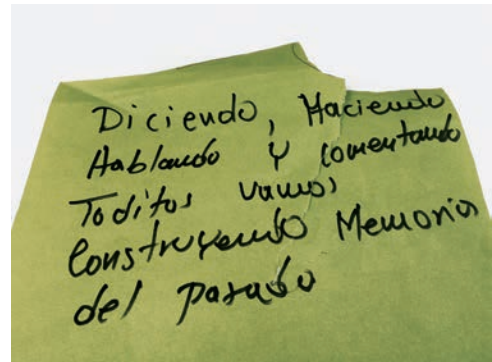 Diciendo, Haciendo
Hablando y comentando
Toditos vamos
Construyendo Memoria
del pasado